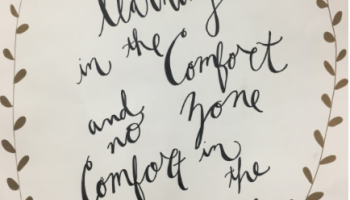 in the Comfort
and no zone
Comfort in
the